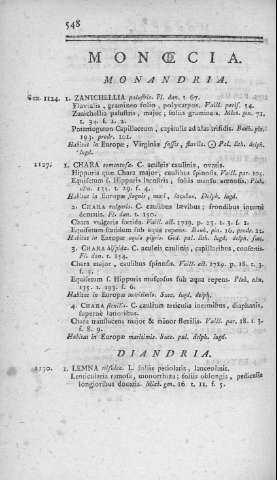 548
MONŒCIA.
MONANDRIA.
Gen. 1124. 1. ZANICHELLIA palustris. Fl. dan. t. 67.
Fluvialis, graminео folio, polycarpos. Vaill. paris. 54.
Zanichellia palustris, major, foliis gramineis. Mich. gen. 71.
t. 34. f. 1. 2.
Potamogeton Capillaceum, capitulis ad alas trifidis. Bauh. pin.
193. prodr. 101.
Habitat in Europæ, Virginiæ fossis, fluviis. Pal. Sch. delph.
lugd.
1127. 1. CHARA tomentosa. C. aculeis caulinis, ovatis.
Hippuris quæ Chara major, caulibus spinosis. Vaill. par. 104.
Equisetum s. Hippuris lacustris, foliis mansu arenosis. Pluk.
alm. 135. t. 29. f. 4.
Habitat in Europæ stagnis, mari, lacubus. Delph. lugd.
2. CHARA vulgaris. C. caulibus lævibus; frondibus interne
dentatis. Fl. dan. t. 150.
Chara vulgaris fœtida. Vaill. act. 1719. p. 23. t. 3. f. 1.
Equisetum fœtidum sub aqua repens. Bauh. pin. 16. prodr. 25.
Habitat in Europæ aquis pigris. Ged. pal. lugd. delph. suec.
3. CHARA hispida. C. aculeis caulinis, capillaribus, confertis.
Fl. dan. t. 154.
Chara major, caulibus spinosis. Vaill. act. 1719. p. 18. t. 3.
f. 3.
Equisetum s. Hippuris muscosus sub aqua repens. Pluk. alm.
135. t. 193. f. 6.
Habitat in Europæ maritimis. Suec. lugd. delph.
4. CHARA flexilis. C. caulium articulis inermibus, diaphanis,
superne latioribus.
Chara translucens major & minor flexilis. Vaill. par. 18. t. 3.
f. 8. 9.
Habitat in Europæ maritimis. Suec. pal. delph. lugd.
DIANDRIA.
1130. 1. LEMNA trisulca. L. foliis petiolatis, lanceolatis.
Lenticularia ramosa, monorrhiza; foliis oblongis, pediculis
longioribus donatis. Mich. gen. 16. t. 11. f. 5.